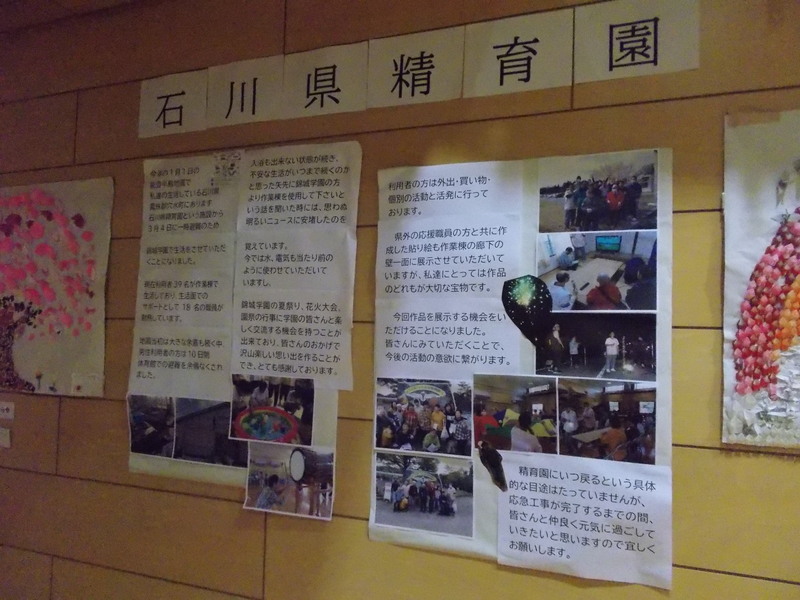 石川県精育園
今年の1月1日の
能登半島地震で
私達の生活している石川県
鳳珠郡穴水町にあります
石川県精育園という施設から
3月4日に一時避難のため
錦城学園で生活をさせていただ
くことになりました。
現在利用者39名が作業棟で
生活しており、生活面での
サポートとして18名の職員が
勤務しています。
地震当初は大きな余震も続く中、
男性利用者の方は10日間
体育館での避難を余儀なくされ
ました。
入浴も出来ない状態が続き、
不安な生活がいつまで続くのか
と思った矢先に錦城学園の方
より作業棟を使用して下さいと
いう話を聞いた時には、思わぬ
明るいニュースに安堵したのを
覚えています。
今では水、電気も当たり前の
ように使わせていただいて
いますし、
錦城学園の夏祭り、花火大会、
園祭の行事に学園の皆さんと楽
しく交流する機会を持つことが
出来ており、皆さんのおかげで
沢山楽しい思い出を作ることが
でき、とても感謝しております。
利用者の方は外出・買い物・
個別の活動と活発に行って
おります。
県外の応援職員の方と共に作
成した貼り絵も作業棟の廊下の
壁一面に展示させていただいて
いますが、私達にとっては作品
のどれもが大切な宝物です。
今回作品を展示する機会をい
ただけることになりました。
皆さんにみていただくことで、
今後の活動の意欲に繋がります。
精育園にいつ戻るという具体
的な目途はたっていませんが、
応急工事が完了するまでの間、
皆さんと仲良く元気に過ごして
いきたいと思いますので宜しく
お願いします。